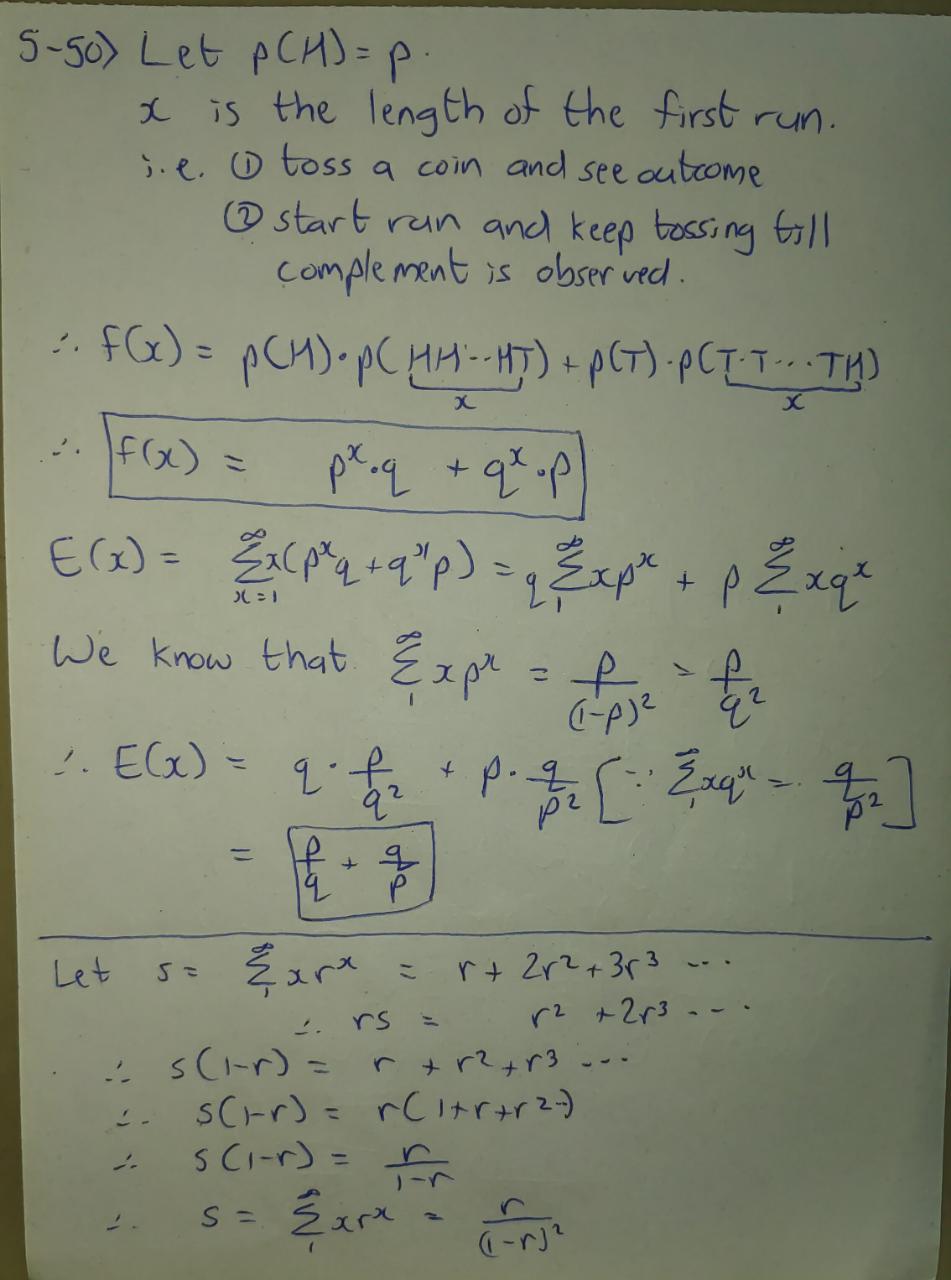 5-50) Let p(H) = p.
x is the length of the first run.
i.e. ① toss a coin and see outcome
② start run and keep tossing till
complement is observed.
∴ f(x) = p(H)·p(HH--HT) + p(T)·p(T·T...TH)
x x
∴ f(x) = pˣ·q + qˣ·p
E(x) = ∑_{x=1}^∞ x(pˣq + qˣp) = q ∑_1^∞ xpˣ + p ∑_1^∞ xqˣ
We know that ∑_1^∞ xpˣ = p/(1-p)² = p/q²
∴ E(x) = q · p/q² + p · q/p² [∵ ∑_1^∞ xqˣ = q/p²]
= p/q + q/p
Let s = ∑_1^∞ xrˣ = r + 2r² + 3r³ ...
∴ rs = r² + 2r³ ...
∴ s(1-r) = r + r² + r³ ...
∴ s(1-r) = r(1+r+r²-)
∴ s(1-r) = r/(1-r)
∴ s = ∑_1^∞ xrˣ = r/(1-r)²